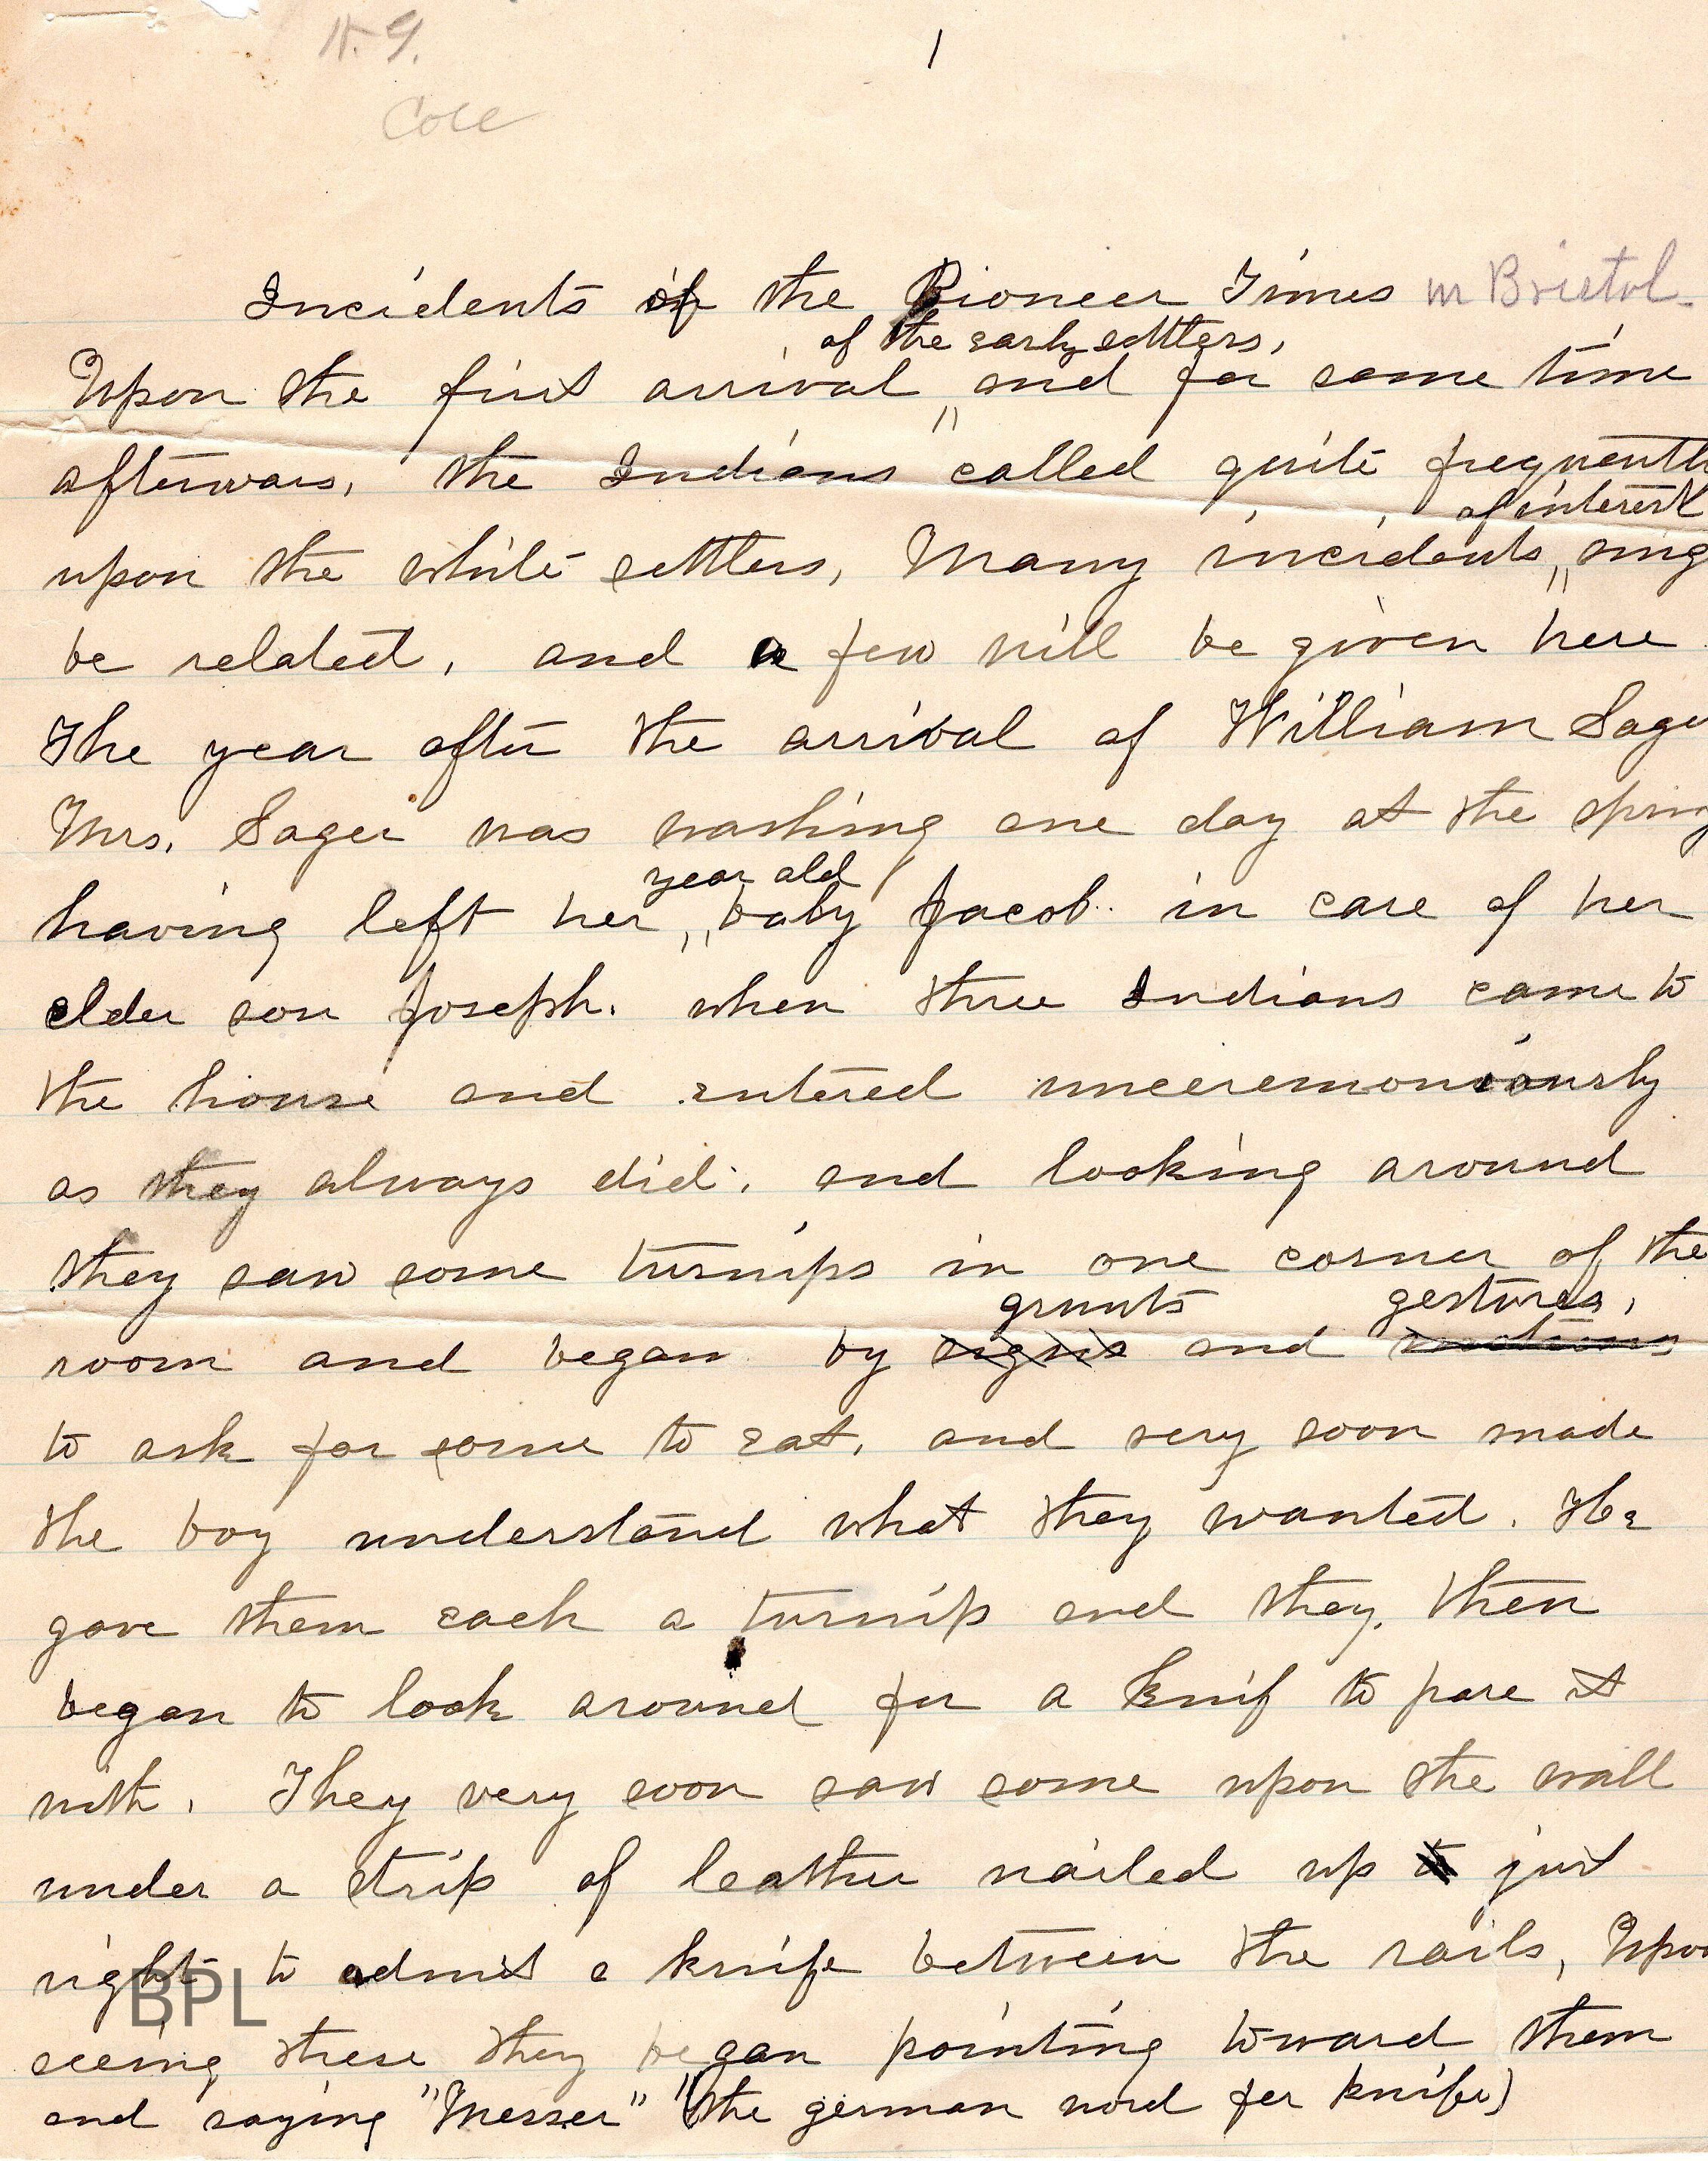 H. G.
1
Cole
Incidents of the Pioneer Times in Bristol.
of the early settlers,
Upon the first arrival, and for some time
afterwars, the Indians called quite frequentl
of interest
upon the white settlers, Many incidents mig
be related, and a few will be given here.
The year after the arrival of William Sage
Mrs. Sager was washing one day at the spring
year old
having left her baby Jacob in care of her
elder son Joseph. when three Indians came to
the house and entered unceremoniously
as they always did, and looking around
they saw some turnips in one corner of the
grunts gestures,
room and began by signs and motions
to ask for some to eat, and very soon made
the boy understand what they wanted. He
gave them each a turnip and they, then
began to look around for a knif to pare it
with. They very soon saw some upon the wall
under a strip of leather nailed up to just
right to admit a knife between the nails, Upon
seeing these they began pointing toward them
and saying "Messer" "(the german word for knife)
BPL